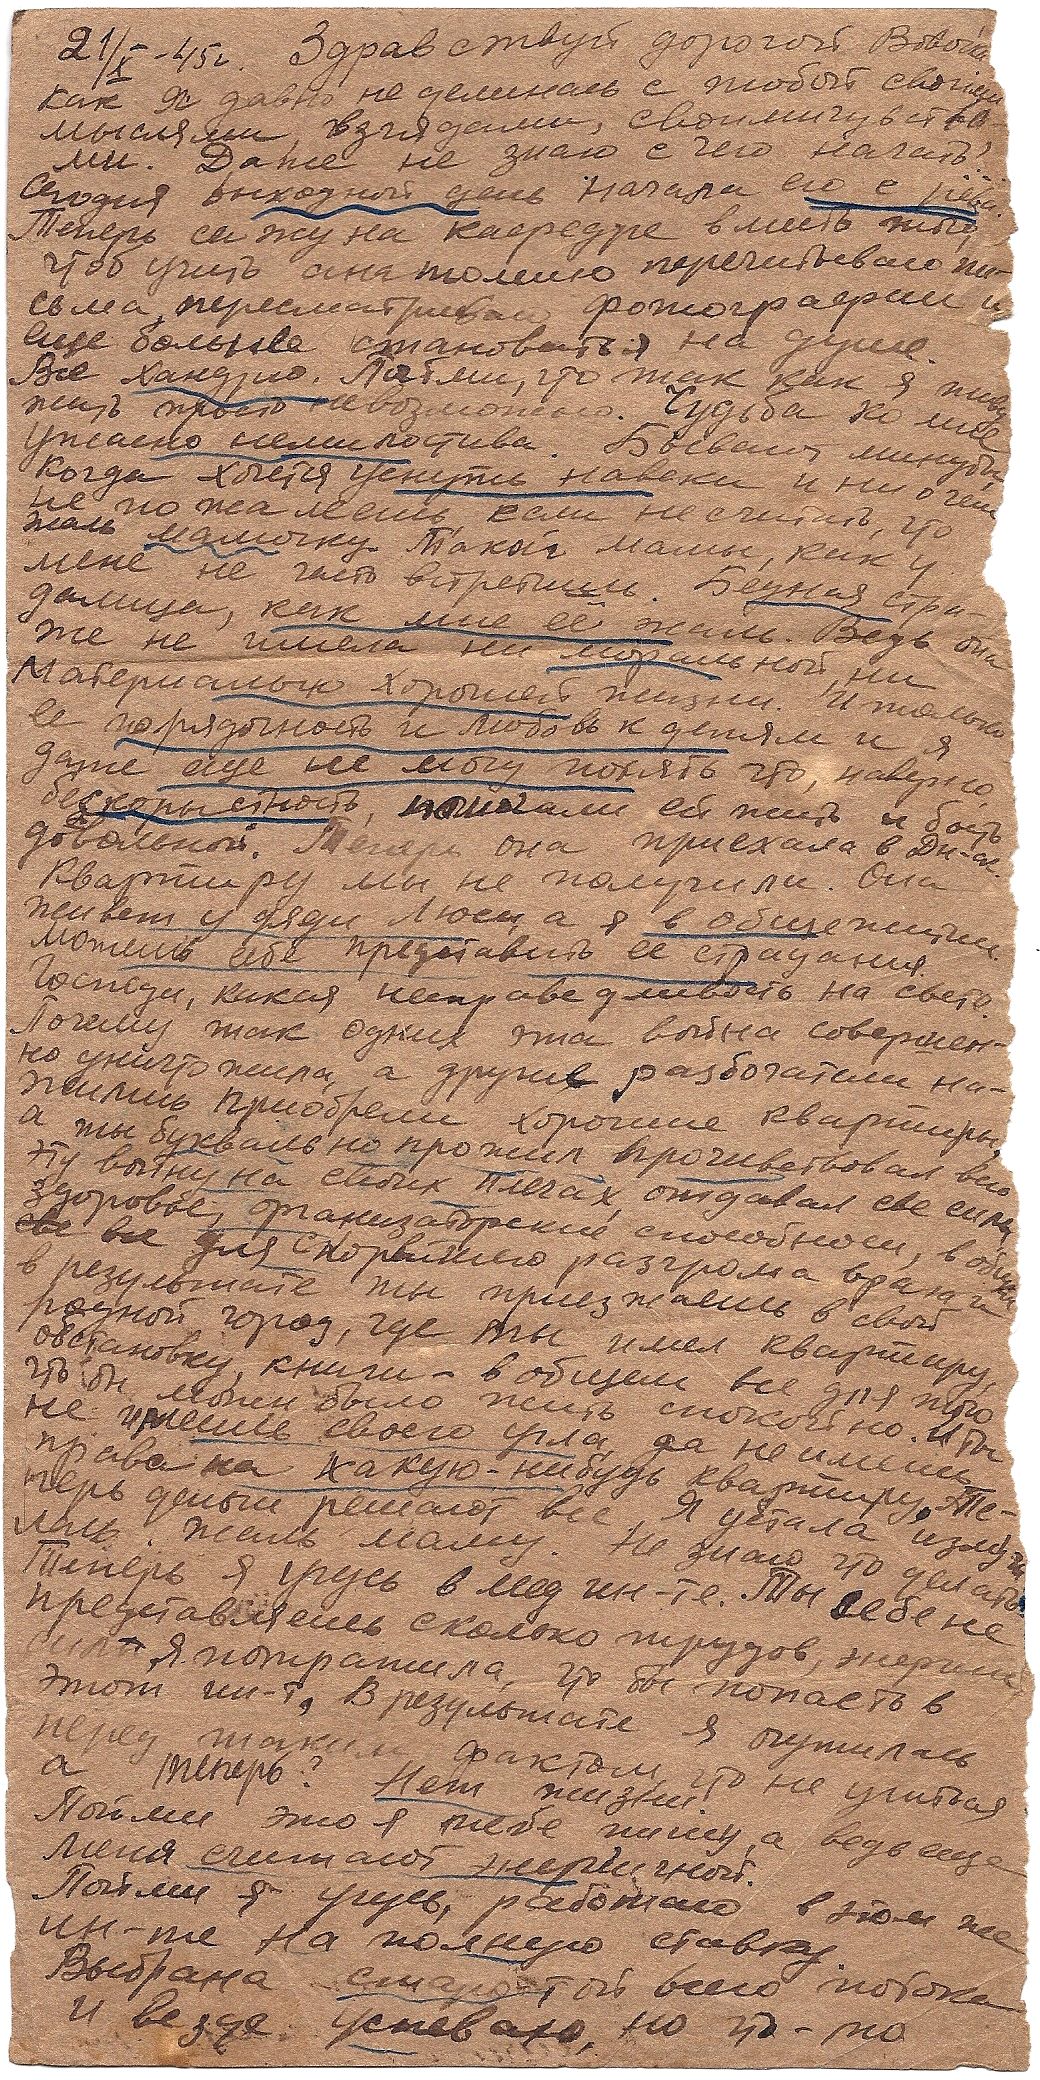 21/X-45г. Здравствуй дорогой Вовочка
как я давно не делилась с тобой своими
мыслями, взглядами, своими чувства-
ми. Даже не знаю с чего начать?
Сегодня выходной день начала его с рёва.
Теперь сижу на кафедре вместо того
чтоб учить анатомию перечитываю пи-
сьма, пересматриваю фотографии и
еще больше становиться на душе.
Все хандрю. Пойми, что так как я живу
жить просто невозможно. Судьба ко мне
ужасно немилостива. Бывают минуты,
когда хочется уснуть навеки и ни о чем
не пожалеешь, если не считать, что
жаль мамочку. Такой мамы, как у
мене не часто встретишь. Бедная стра-
далица, как мне её жаль. Ведь она
же не имела ни моральной, ни
материально хорошей жизни. И только
ее порядочность и любовь к детям и я
даже еще не могу понять что, наверно,
бескорыстность, ей жить и быть
довольной. Теперь она приехала в Дн-ск.
Квартиру мы не получили. Она
живет у дяди Люси, а я в общежитии.
Можешь себе представить ее страдания.
Господи, какая несправедливость на свете.
Почему так одних эта война совершен-
но уничтожила, а другие разбогатели на-
жились приобрели хорошие квартиры,
а ты буквально прожил прочувствовал всю
эту войну на своих плечах, отдавал све силы
здоровье, организаторские способноси, в общем
все для скорейшего разгрома врага и
в результате ты приезжаешь в свой
родной город, где ты имел квартиру,
обстановку, книги - в общем все для того
что бы можен было жить спокойно. И ты
не имеешь своего угла, да не имеешь
права на какую-нибудь квартиру. Те-
перь деньги решают все. Я устала измучи
лась, жаль маму. Не знаю что делать.
Теперь я учусь в мед ин-те. Ты себе не
представляешь сколько трудов, энергии
силы, я потратила, что бы попасть в
этот ин-т. В результате я очутилась
перед таким фактом, что не учиться
а теперь? Нет жизни.
Пойми это я тебе пишу, а ведь еще
меня считают энергичной.
Пойми я учусь, работаю в этом же
ин-те на полную ставку.
Выбрана старостой всего потока
и везде успеваю, но что-то